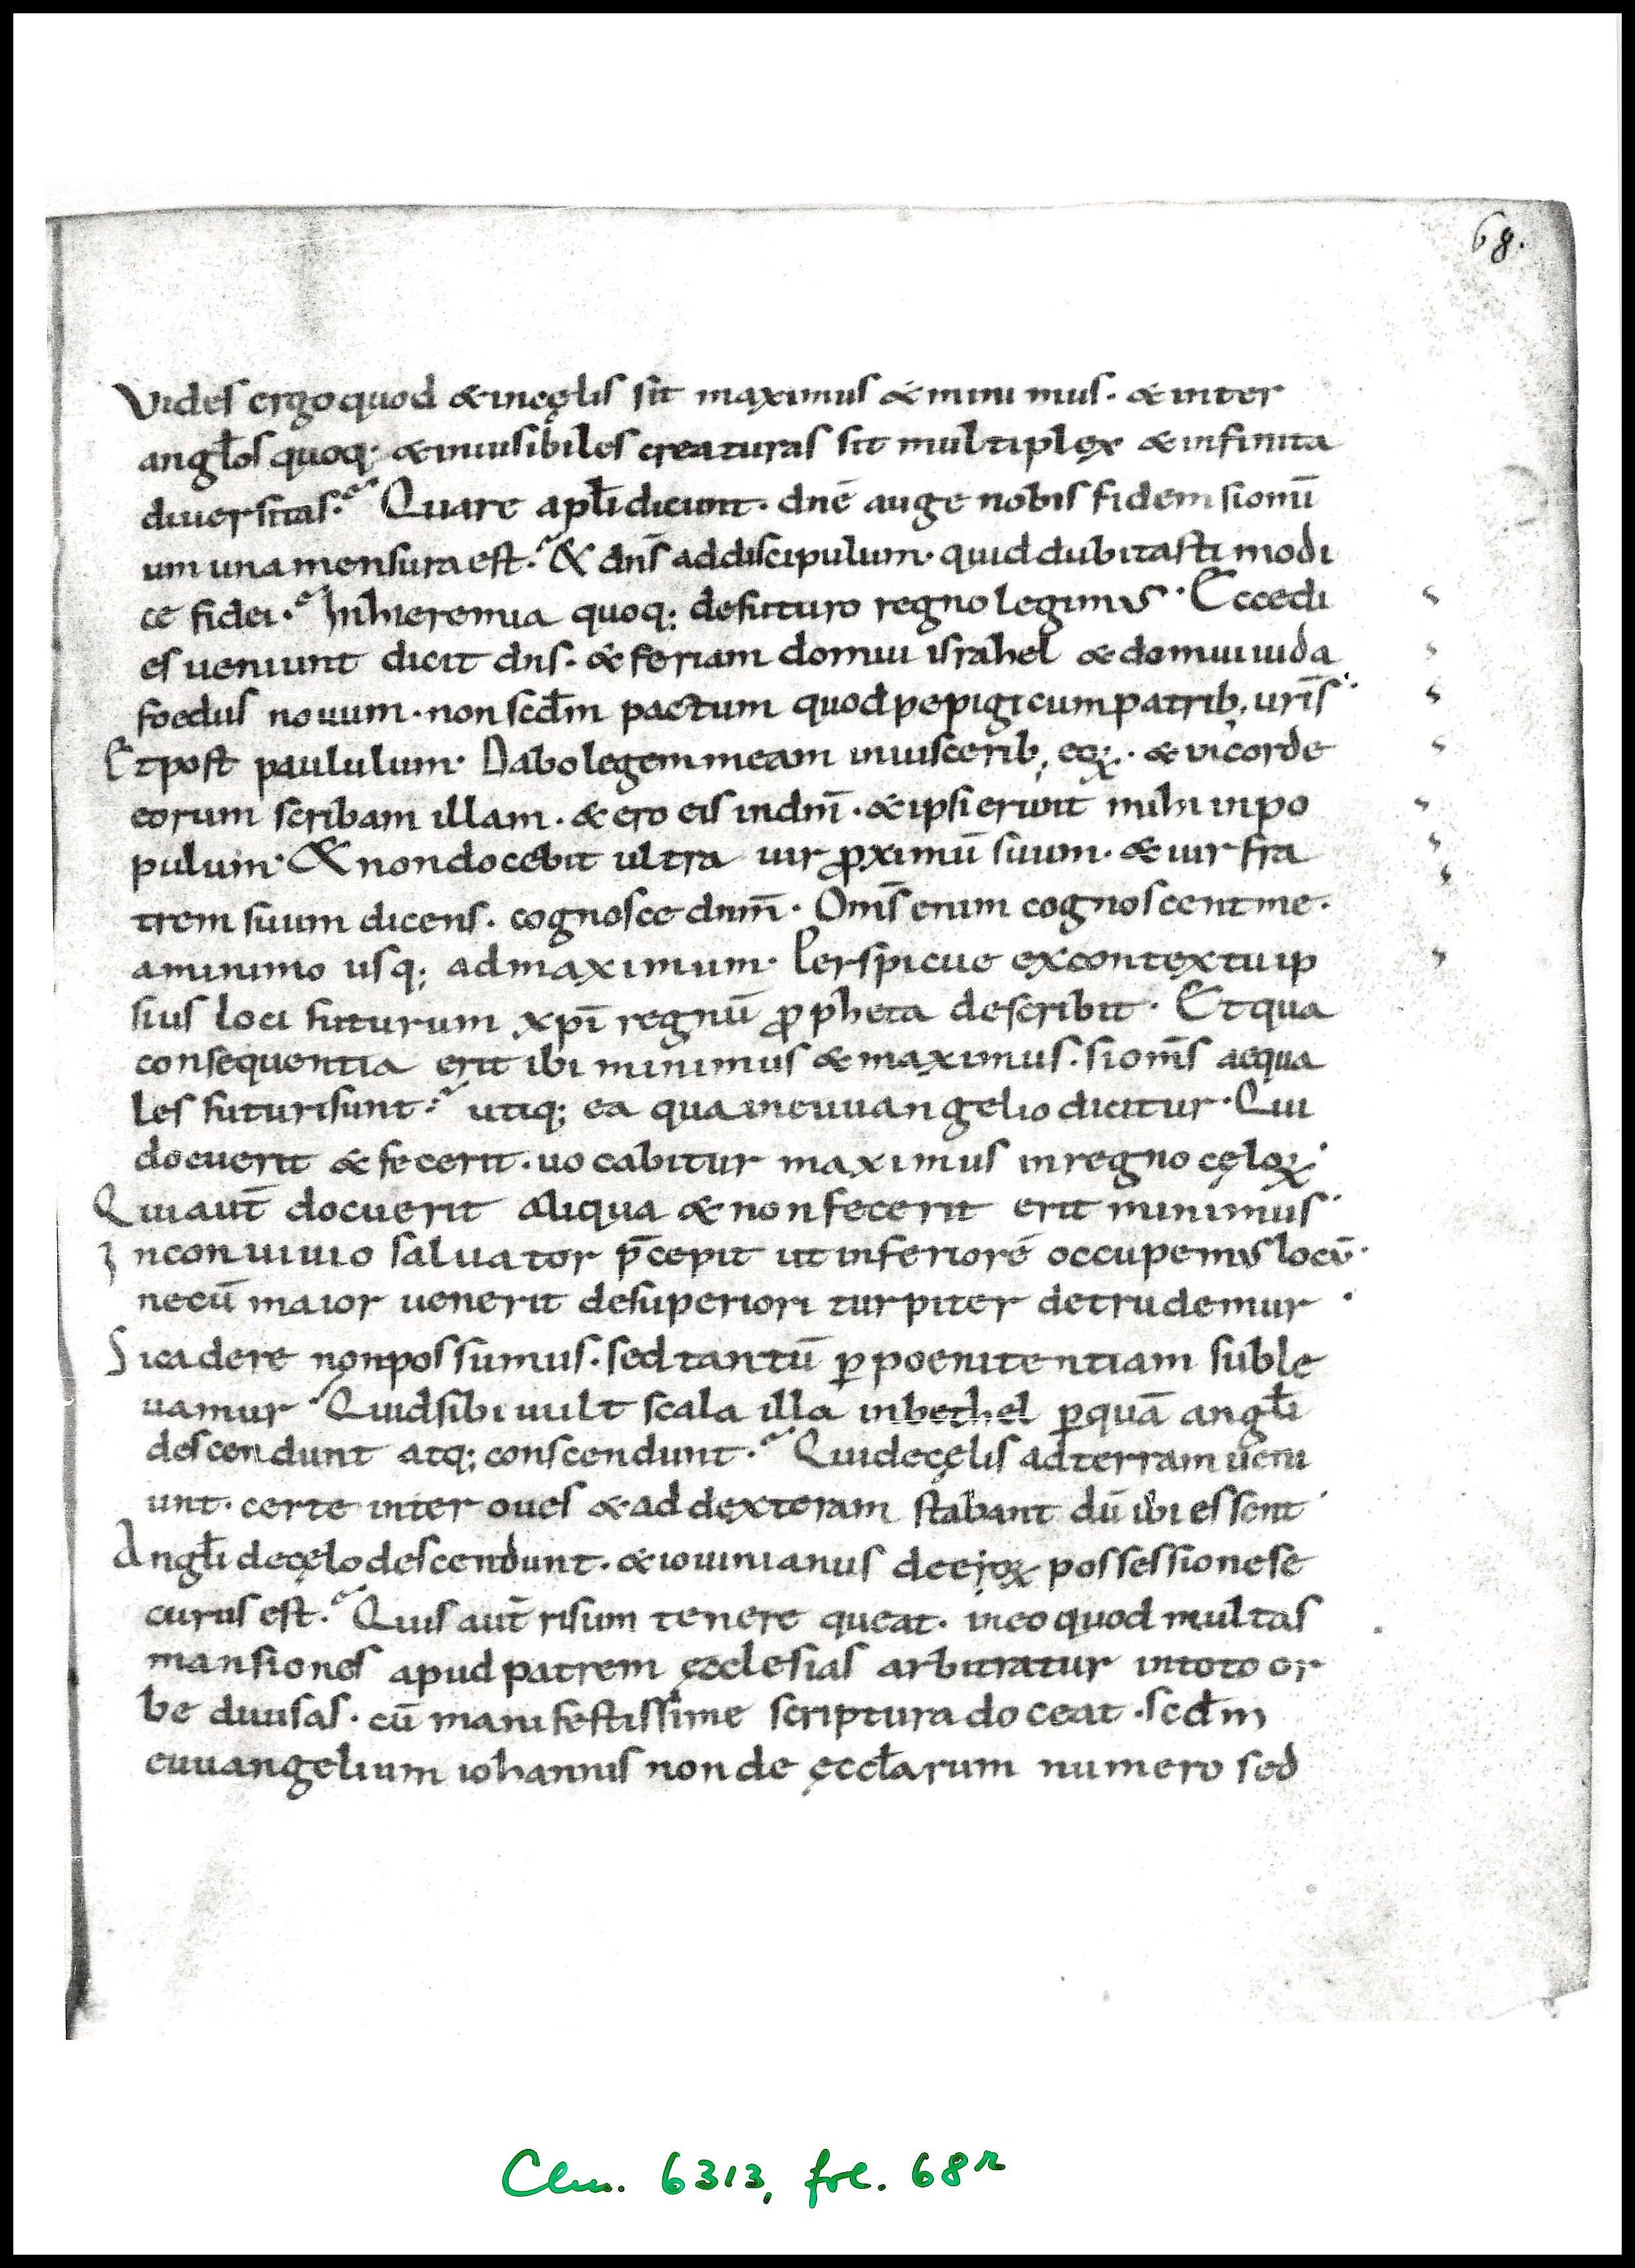 68.
Vides ergo quod & incęlis sit maximus & minimus. & inter
angłos quoq; & inuisibiles creaturas sit multiplex & infinita
diuersitas. Quare apłi dicunt. dnē auge nobis fidem si omniū
um una mensura est. & dn̄s ad discipulum. quid dubitasti modi
ce fidei. In hieremia quoq; de futuro regno legimus. Ecce di
es ueniunt dicit dns. & feriam domui israhel & domui iuda
foedus nouum. non scd̄m pactum quod pepigi cum patrib; urīs
Et post paululum. Dabo legem meam in uisceribꝫ eoꝝ. & in corde
eorum scribam illam. & ero eis in dm̄. & ipsi erunt mihi in po
pulum. & non docebit ultra uir ꝓximū suum. & uir fra
trem suum dicens. cognosce dnm̄. Om̄s enim cognoscent me.
a minimo usq; ad maximum. Perspicue ex contextu ip
sius loci futurum xp̄i regnū ꝓpheta describit. Et qua
consequentia erit ibi minimus & maximus. si om̄s aequa
les futuri sunt. utiq; ea qua in euuangelio dicitur. Qui
docuerit & fecerit. uocabitur maximus in regno cęloꝝ.
Qui aut̄ docuerit aliqua & non fecerit erit minimus.
In conuiuio saluator p̄cepit ut inferiorē occupemus locū.
ne cū maior uenerit de superiori turpiter detrudemur.
Si cadere non possumus. sed tantū ꝑ poenitentiam suble
uamur Quid sibi uult scala illa in bethel ꝑ quā angłi
descendunt atq; conscendunt. Qui de cęlis ad terram ueni
unt. certe inter oues & ad dexteram stabant dū ibi essent.
Angłi de cęlo descendunt. & iouinianus de eiꝝ possessione se
curus est. Quis aut̄ risum tenere queat. in eo quod multas
mansiones apud patrem ęcclesias arbitratur in toto or
be diuisas. cū manifestissime scriptura doceat. scd̄m
euuangelium iohannis non de ęccłarum numero sed
Clm. 6313, fol. 68r